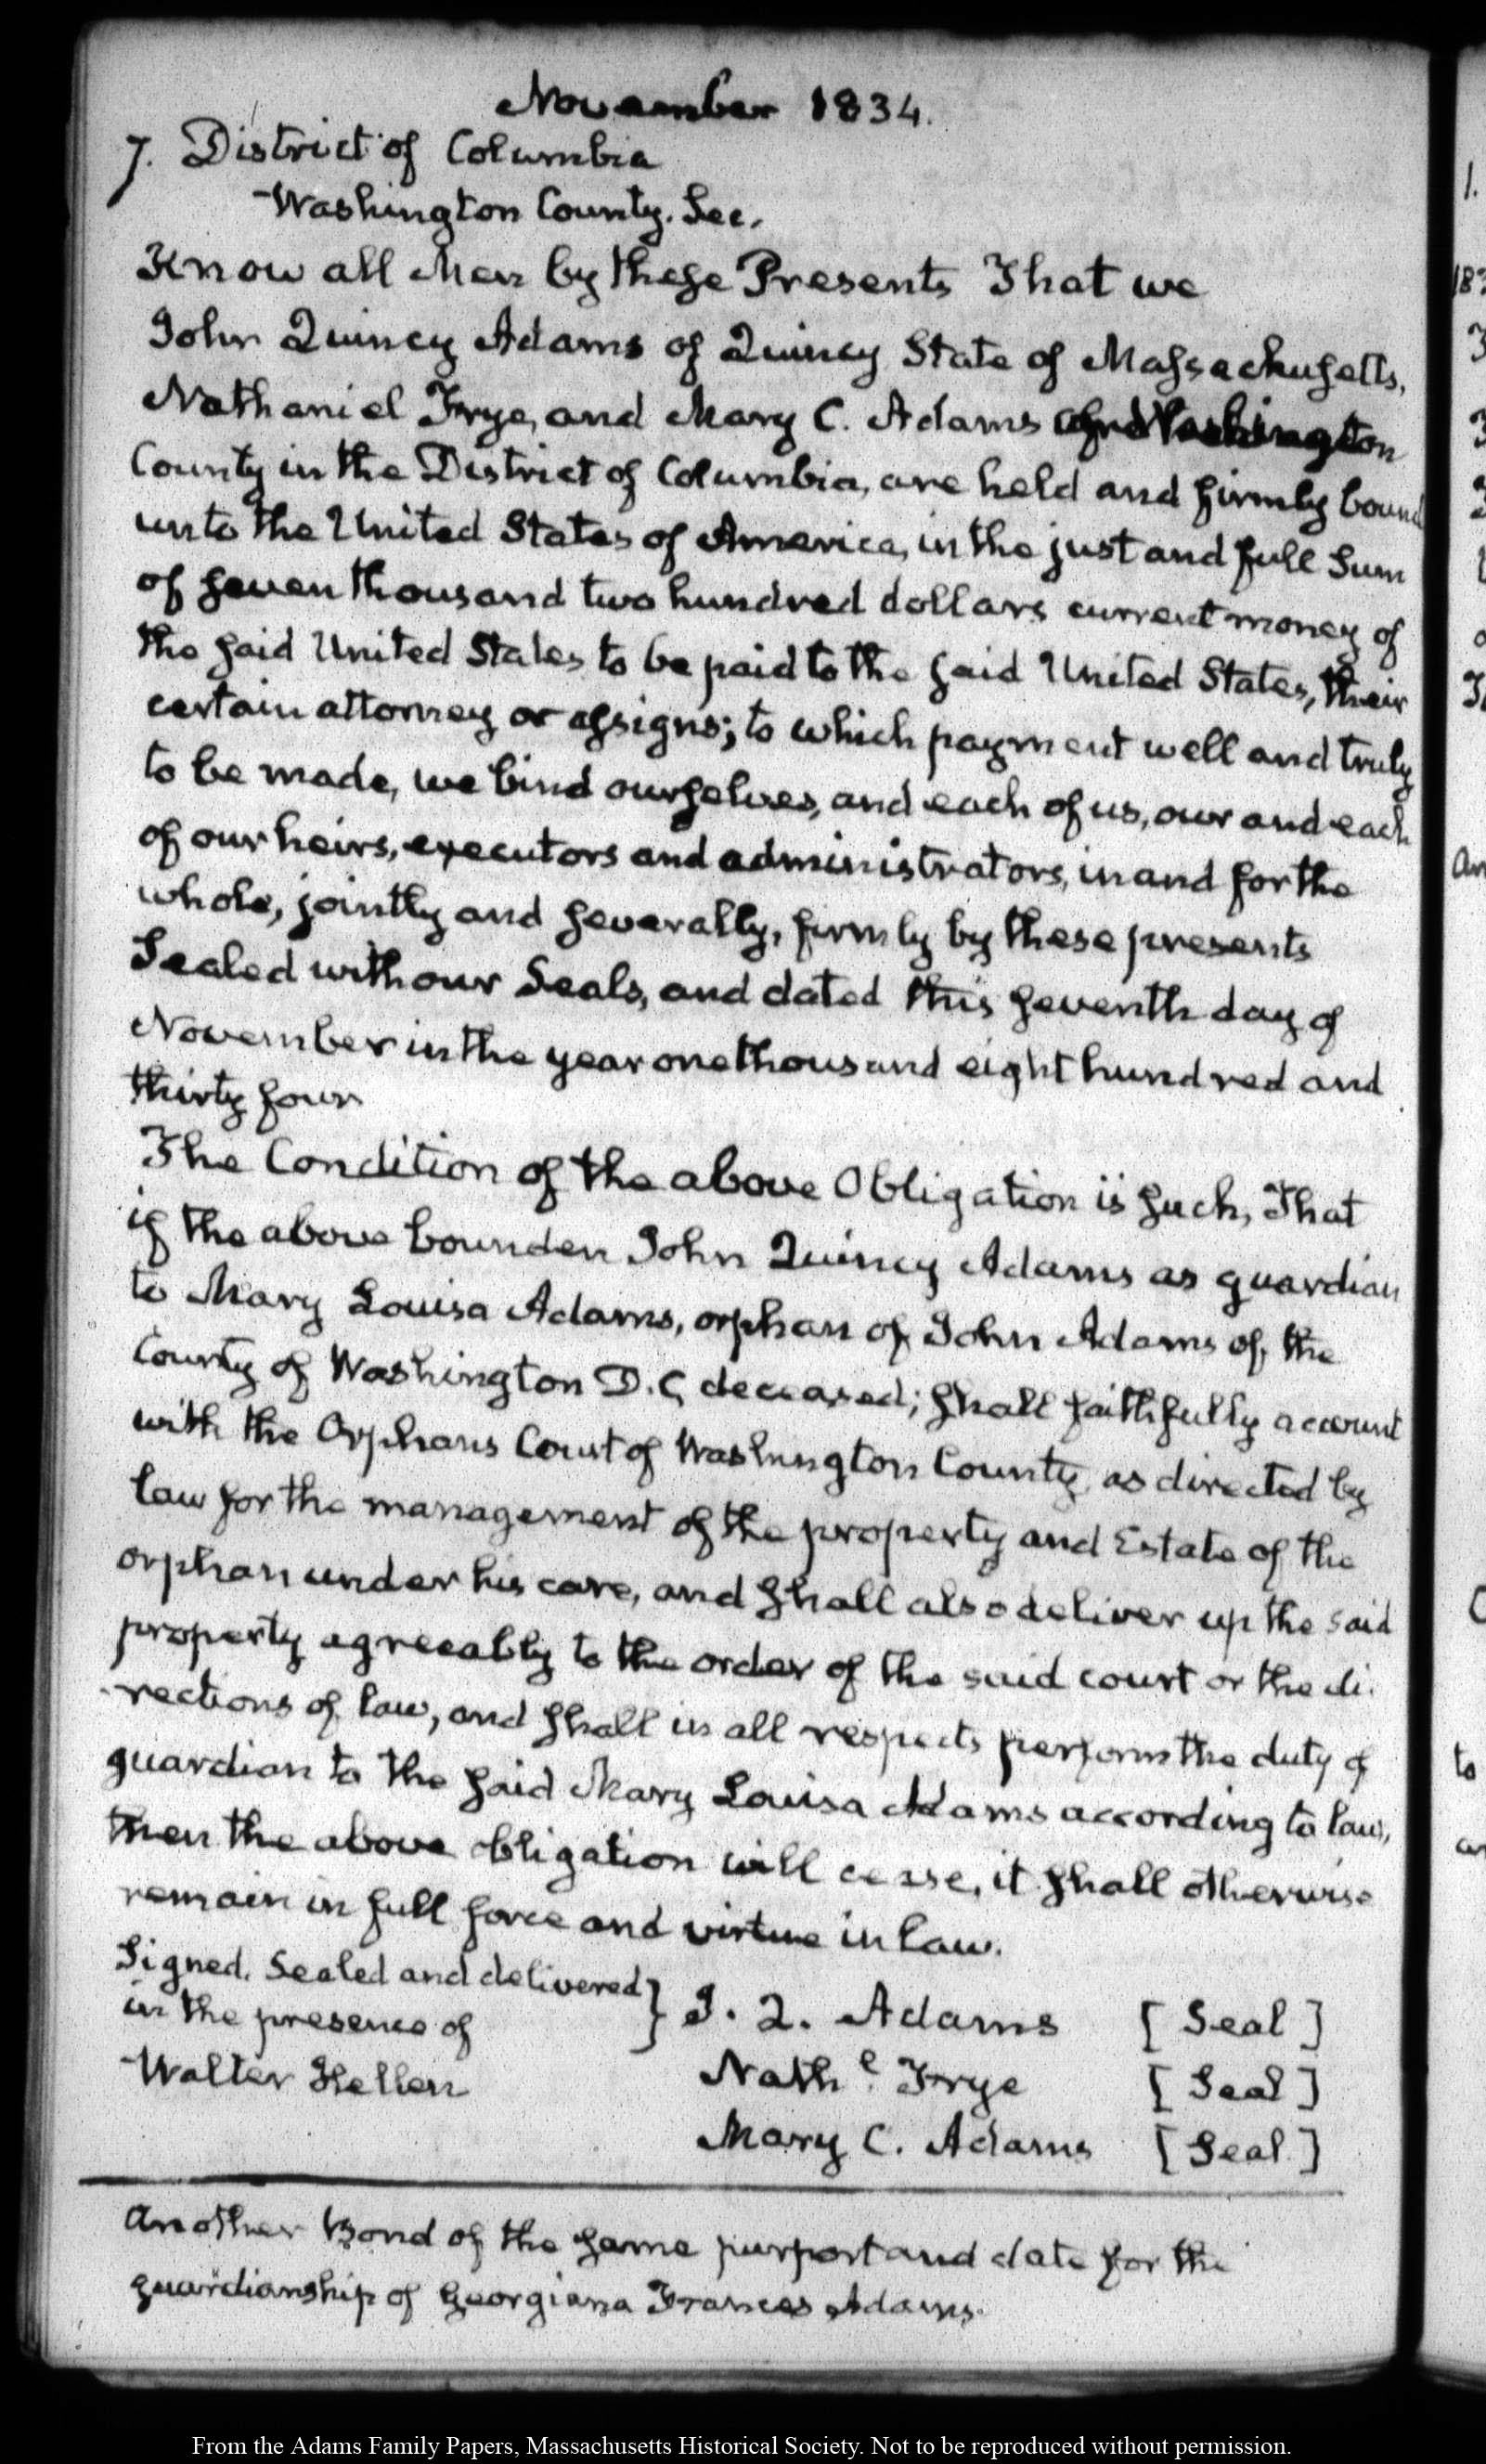 November 1834.
7. District of Columbia
Washington County. Sec.
Know all Men by these Presents That we
John Quincy Adams of Quincy State of Massachusetts,
Nathaniel Frye, and Mary C. Adams Washington
County in the District of Columbia, are held and firmly bound
unto the United States of America, in the just and full Sum
of seven thousand two hundred dollars current money of
the said United States to be paid to the said United States, their
certain attorney or assigns; to which payment well and truly
to be made, we bind ourselves, and each of us, our and each
of our heirs, executors and administrators, in and for the
whole, jointly and severally, firmly by these presents
Sealed with our Seals, and dated this seventh day of
November in the year one thousand eight hundred and
thirty four
The Condition of the above Obligation is such, That
if the above bounden John Quincy Adams as guardian
to Mary Louisa Adams, orphan of John Adams of, the
County of Washington D.C, deceased; shall faithfully account
with the Orphans Court of Washington County, as directed by
law for the management of the property and Estate of the
orphan under his care, and shall also deliver up the said
property agreeably to the order of the said court or the di-
rections of law, and shall in all respects perform the duty of
guardian to the said Mary Louisa Adams according to law,
then the above obligation will cease, it shall otherwise
remain in full force and virtue in law.
Signed, Sealed and delivered } J. Q. Adams [Seal]
in the presence of
Walter Hellen Nathl. Frye [Seal]
Mary C. Adams [Seal]
Another Bond of the same purport and date for the
guardianship of Georgiana Frances Adams.
From the Adams Family Papers, Massachusetts Historical Society. Not to be reproduced without permission.